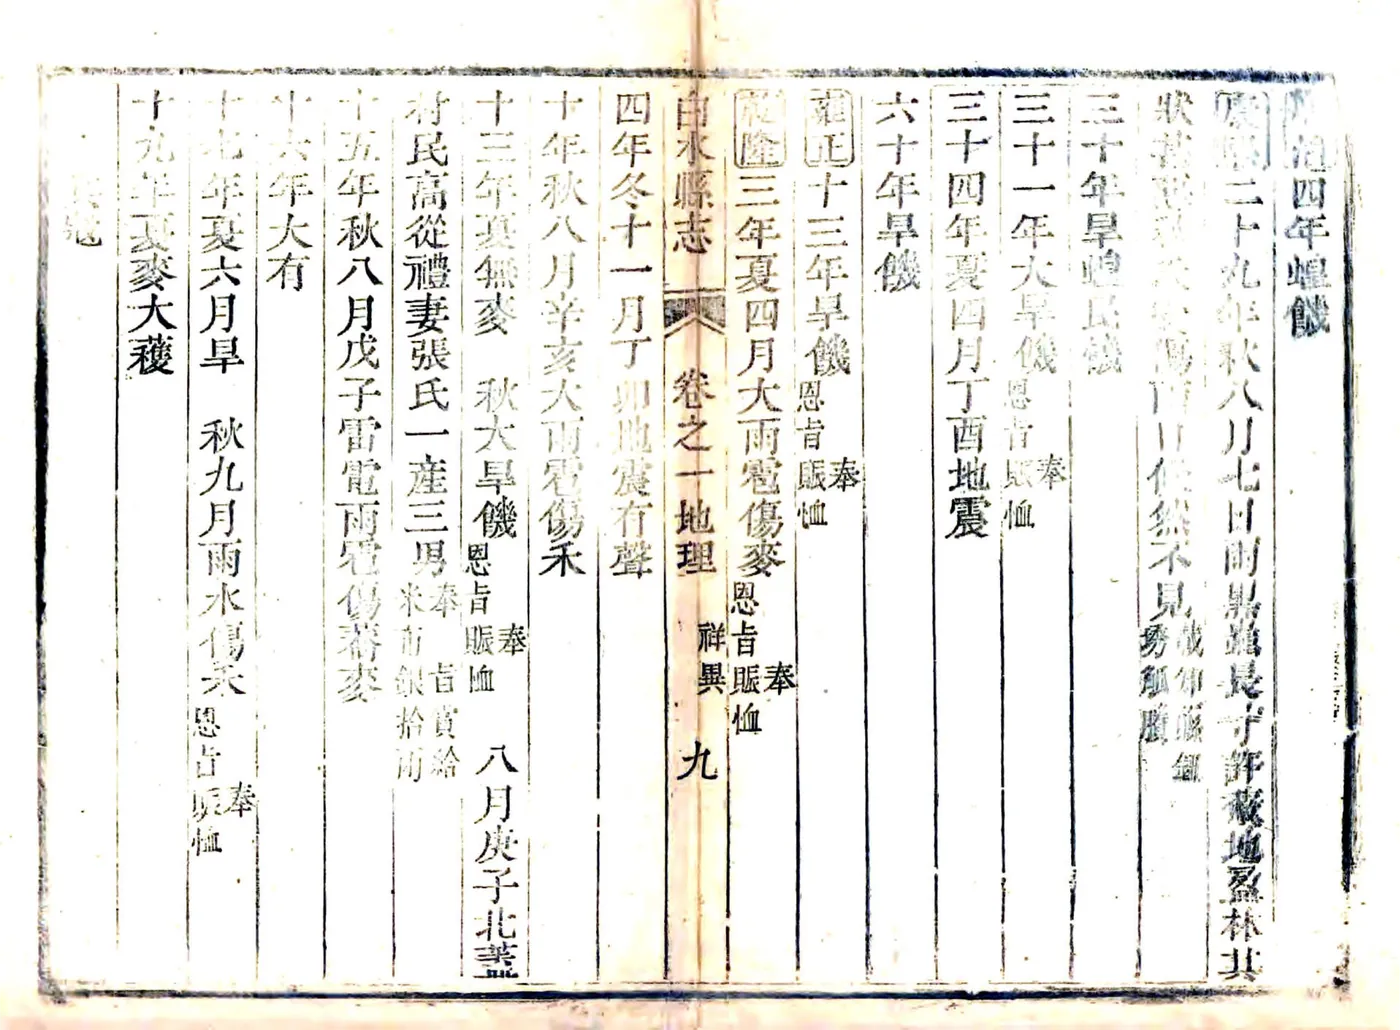 順治四年蝗饑
康熙二十九年秋八月七日雨黑蟲長寸許蔽地盈林其
狀甚惡秋
然不見
三十年旱蝗民饑
三十一年大旱饑奉恩旨賑恤
三十四年夏四月丁酉地震
六十年旱饑
雍正十三年旱饑奉恩旨賑恤
乾隆三年夏四月大雨雹傷麥奉恩旨賑恤
白水縣志 卷之一地理 祥異 九
四年冬十一月丁卯地震有聲
十年秋八月辛亥大雨雹傷禾
十三年夏無麥 秋大旱饑奉恩旨賑恤 八月庚子北蓋
村民高從禮妻張氏一產三男奉旨賞給米布銀拾兩
十五年秋八月戊子雷電雨雹傷蕎麥
十六年大有
十七年夏六月旱 秋九月雨水傷禾奉恩旨賑恤
十九年夏麥大穫
兵寇